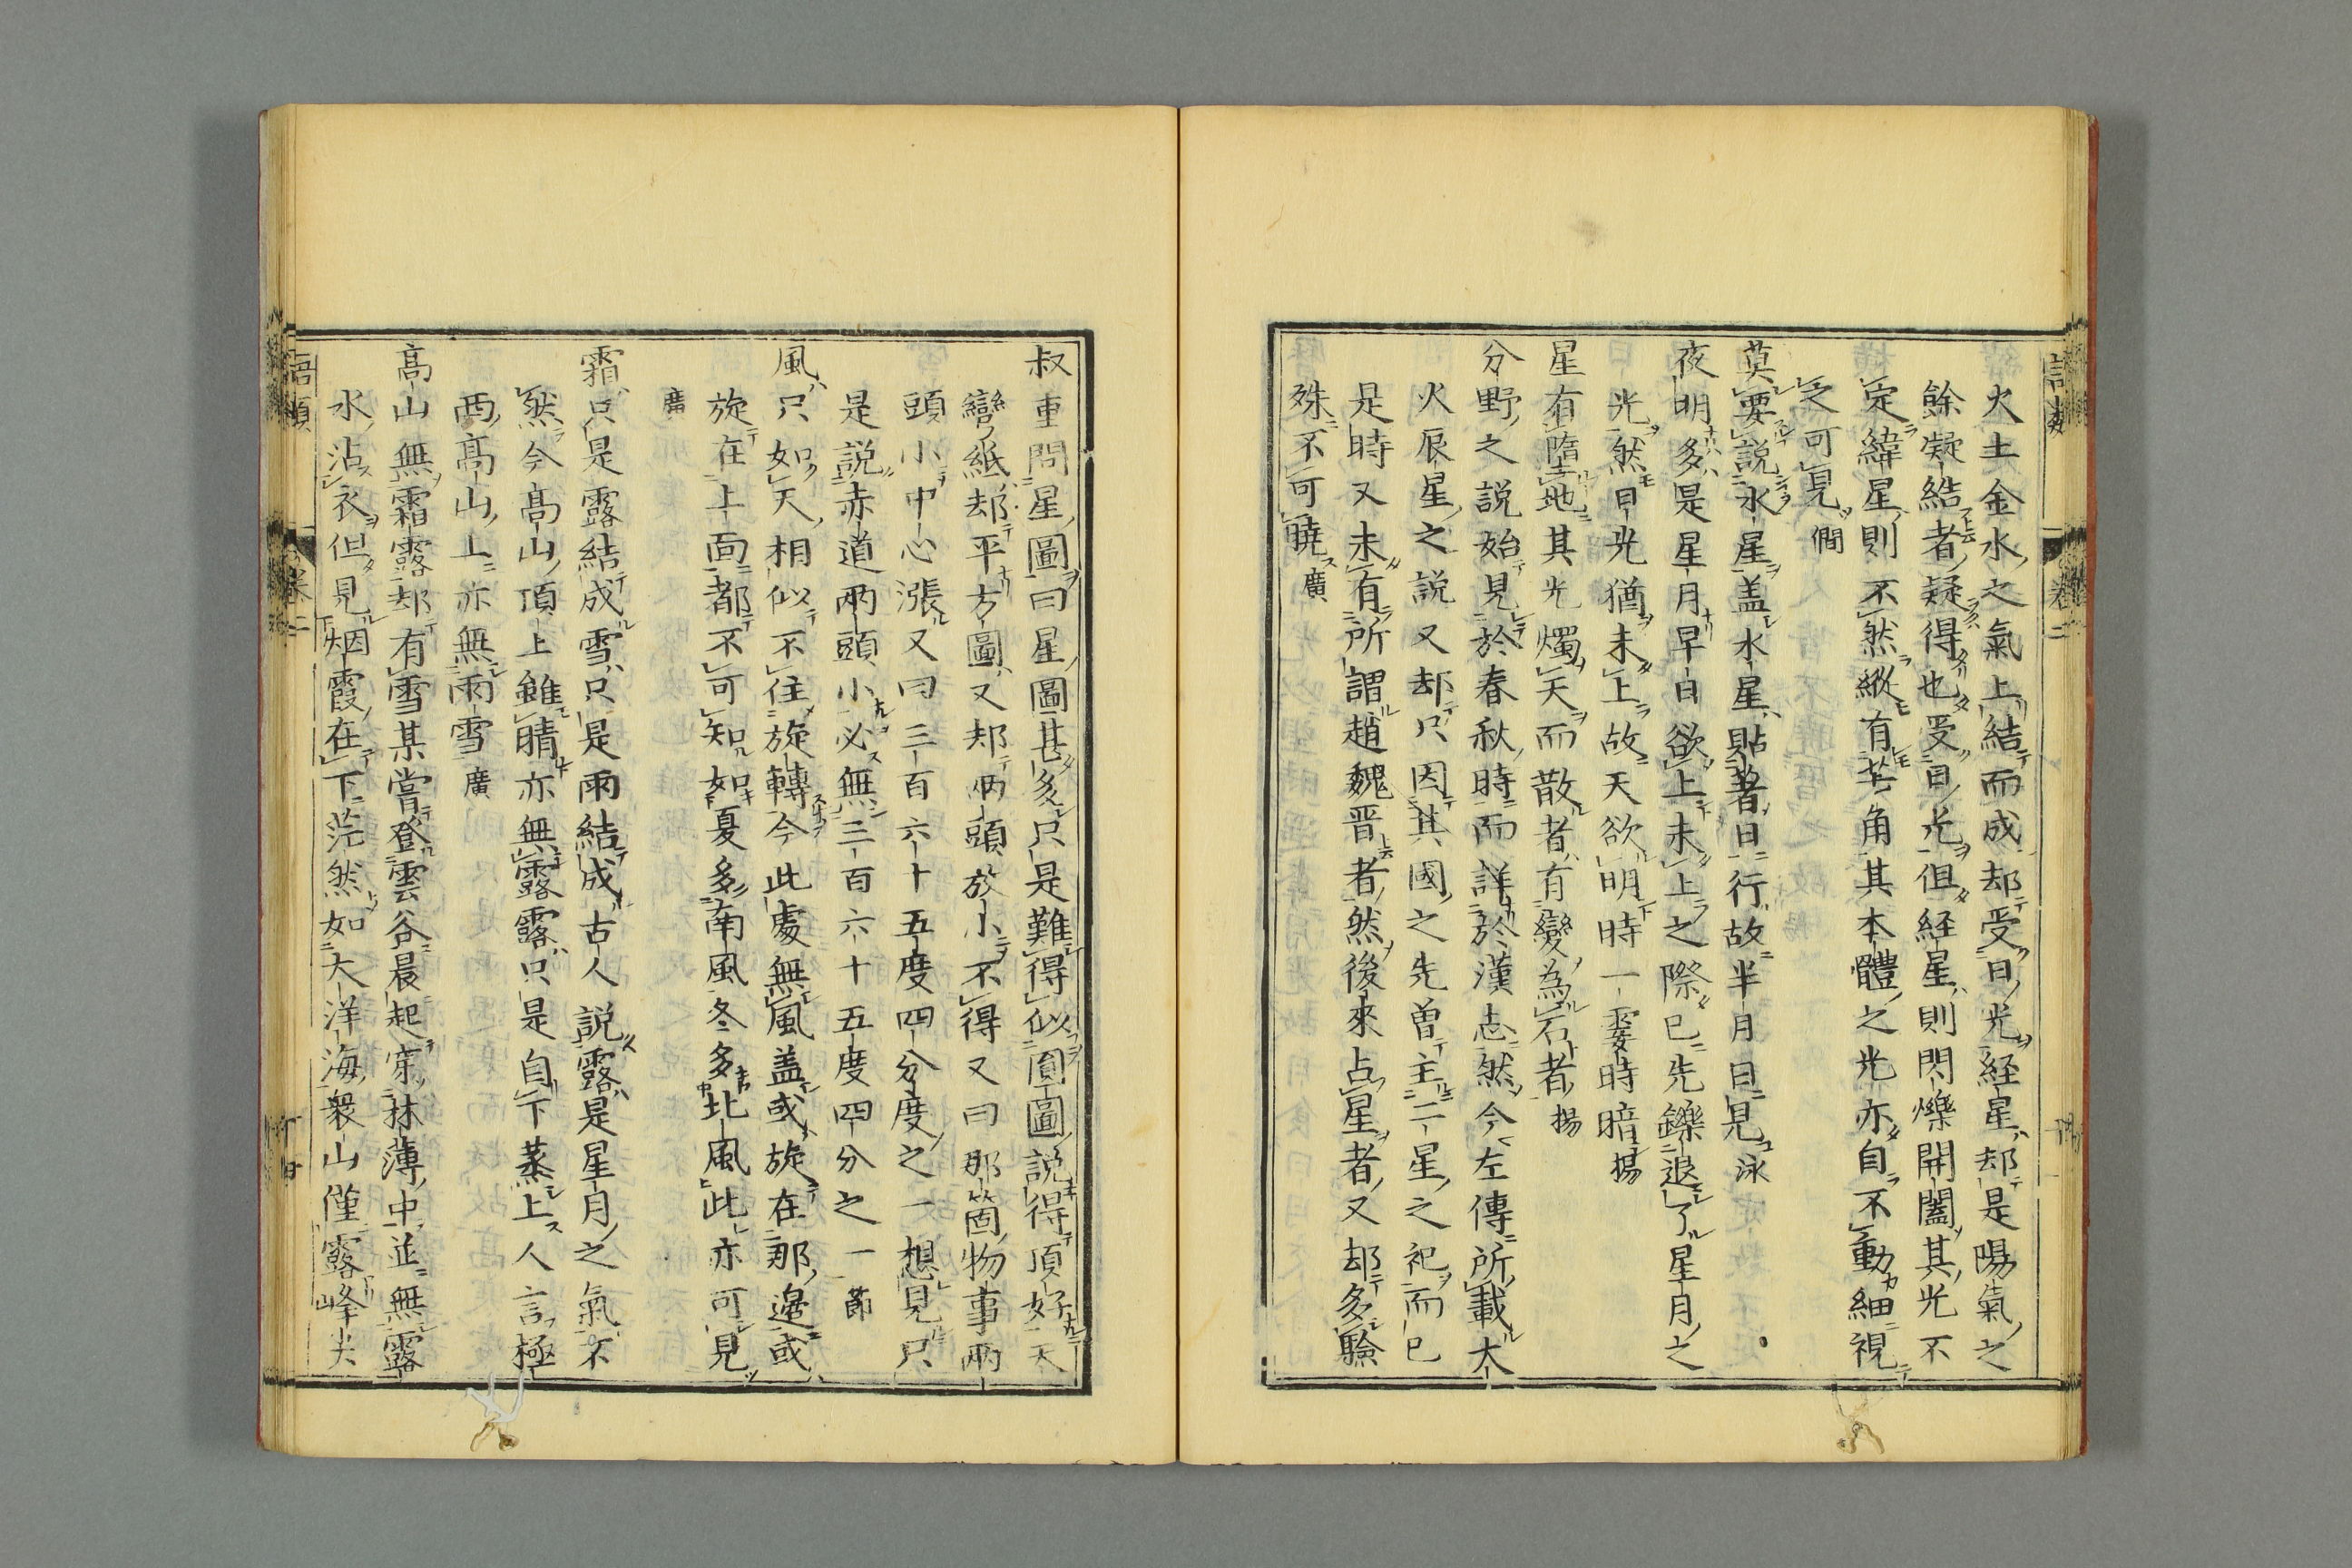 火土金水之氣上結而成却受日光経星却是陽氣之
餘凝結者疑得也受日光但経星則閃爍開闔其光不
定緯星則不然縱有芒角其本體之光亦自不動細視
之可見 僩
莫要説水星盖水星貼著日行故半月日見 泳
夜明多是星月早日欲上未上之際已先鑠退了星月之
光然日光猶未上故天欲明時一霎時暗 揚
星有墮地其光燭天而散者有變為石者 揚
分野之説始見於春秋時而詳於漢志然今左傳所載大
火辰星之説又却只因其國之先曽主二星之祀而已
是時又未有所謂趙魏晋者然後来占星者又却多驗
殊不可暁 廣
叔重問星圖曰星圖甚多只是難得似圎圖説得頂好天
彎紙却平方圖又却兩頭放小不得又曰那箇物事兩
頭小中心漲又曰三百六十五度四分度之一想見只
是説赤道兩頭小必無三百六十五度四分之一 節
風只如天相似不住旋轉今此處無風盖或旋在那邊或
旋在上面都不可知如夏多南風冬多北風此亦可見
廣
霜只是露結成雪只是雨結成古人説露是星月之氣不
然今高山頂上雖晴亦無露露只是自下蒸上人言極
西高山上亦無雨雪 廣
高山無霜露却有雪某嘗登雲谷晨起穿林薄中並無露
水沾衣但見烟霞在下茫然如大洋海衆山僅露峰尖
語類 卷二